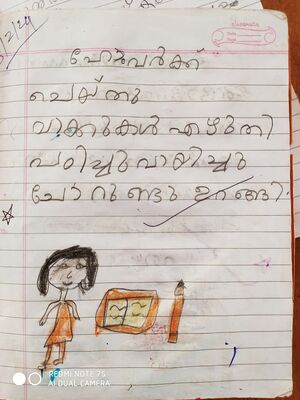 classmate
Date
Page
/2/24
ഹോംവർക്ക്
ചെയ്തു
വാക്കുകൾ എഴുതി
പഠിച്ചു വായിച്ചു
ചോറുണ്ടു ഉറങ്ങി.
REDMI NOTE 7S
AI DUAL CAMERA